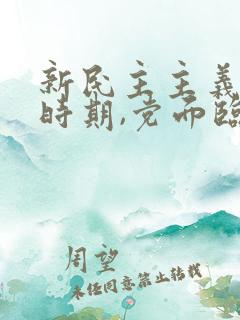 新民主主義
時期,党面臨
周望
未经同意禁止转载